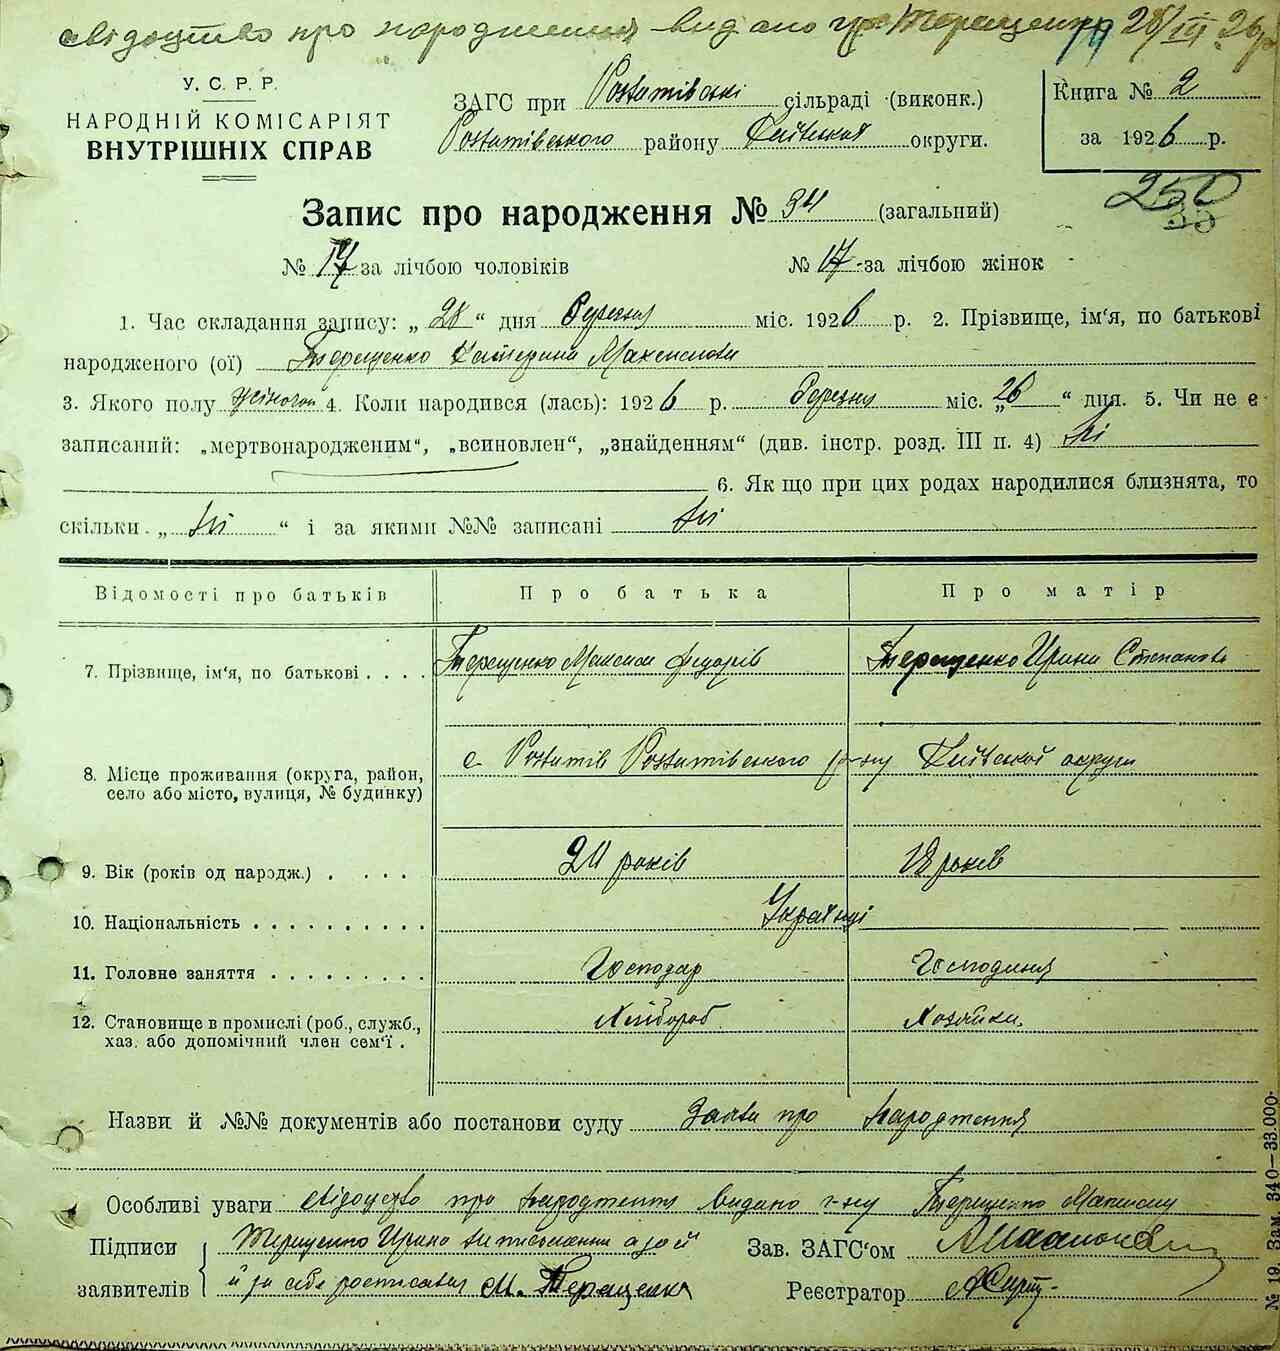 свідоцтво про народження видано гр. Терещенко 28/III 26 р
У. С. Р. Р.
НАРОДНІЙ КОМІСАРІЯТ
ВНУТРІШНІХ СПРАВ
ЗАГС при сільраді (виконк.)
району Київської округи.
Книга № 2
за 1926 р.
250
35
Запис про народження № 34 (загальний)
№ 17 за лічбою чоловіків № 17 за лічбою жінок
1. Час складання запису: „ 28 “ дня березня міс. 1926 р. 2. Прізвище, ім'я, по батькові
народженого (ої) Терещенко Катерина Максимова
3. Якого полу жіночого 4. Коли народився (лась): 1926 р. березня міс. „ 26 “ дня. 5. Чи не є
записаний: „мертвонародженим“, „всиновлен“, „знайденням“ (див. інстр. розд. III п. 4) Ні
6. Як що при цих родах народилися близнята, то
скільки. „ Ні “ і за якими №№ записані Ні
Відомості про батьків Про батька Про матір
7. Прізвище, ім'я, по батькові . . . . Терещенко Максим Федорів Терещенко Ирина Степанова
8. Місце проживання (округа, район,
село або місто, вулиця, № будинку) с. р-ну Київської округи
9. Вік (років од народж.) . . . . 20 років 18 років
10. Національність . . . . . . . . . . Українці
11. Головне заняття . . . . . . . . . Господар Господиня
12. Становище в промислі (роб., служб., Хлібороб Хозяйка
хаз. або допомічний член сем'ї .
Назви й №№ документів або постанови суду Заява про народження
Особливі уваги свідоцтво про народження видано г-ну Терещенко Максиму
Підписи
заявителів
Терещенко Ирина неписьменна а за неї
й за себе росписався М. Терещенко
Зав. ЗАГС'ом
Реєстратор
№ 19. Зам. 340—33.000.